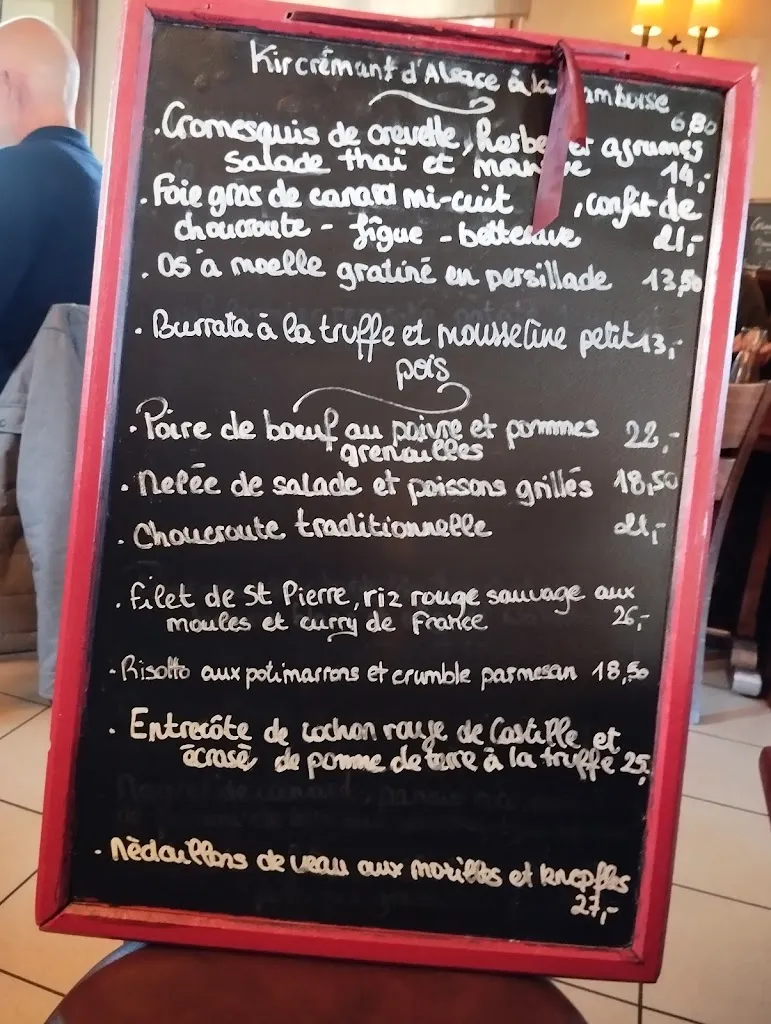 Kir crémant d'Alsace à la amboise
6,80
. Cromesquis de crevette, herbe et agrumes
salade thaï et man e 14,-
. Foie gras de canard mi-cuit , confit de
choucroute - figue - betterave 21,-
. Os à moelle gratiné en persillade 13,50
. Burrata à la truffe et mousseline petit 13,-
pois
. Poire de bœuf au poivre et pommes 22,-
grenailles
. Melée de salade et poissons grillés 18,50
. Choucroute traditionnelle 21,-
. Filet de St Pierre, riz rouge sauvage aux
moules et curry de France 26,-
. Risotto aux potimarrons et crumble parmesan 18,50
. Entrecôte de cochon rouge de Castille et
écrasé de pomme de terre à la truffe 25,
. Mèdaillons de veau aux morilles et knepfles
27,-